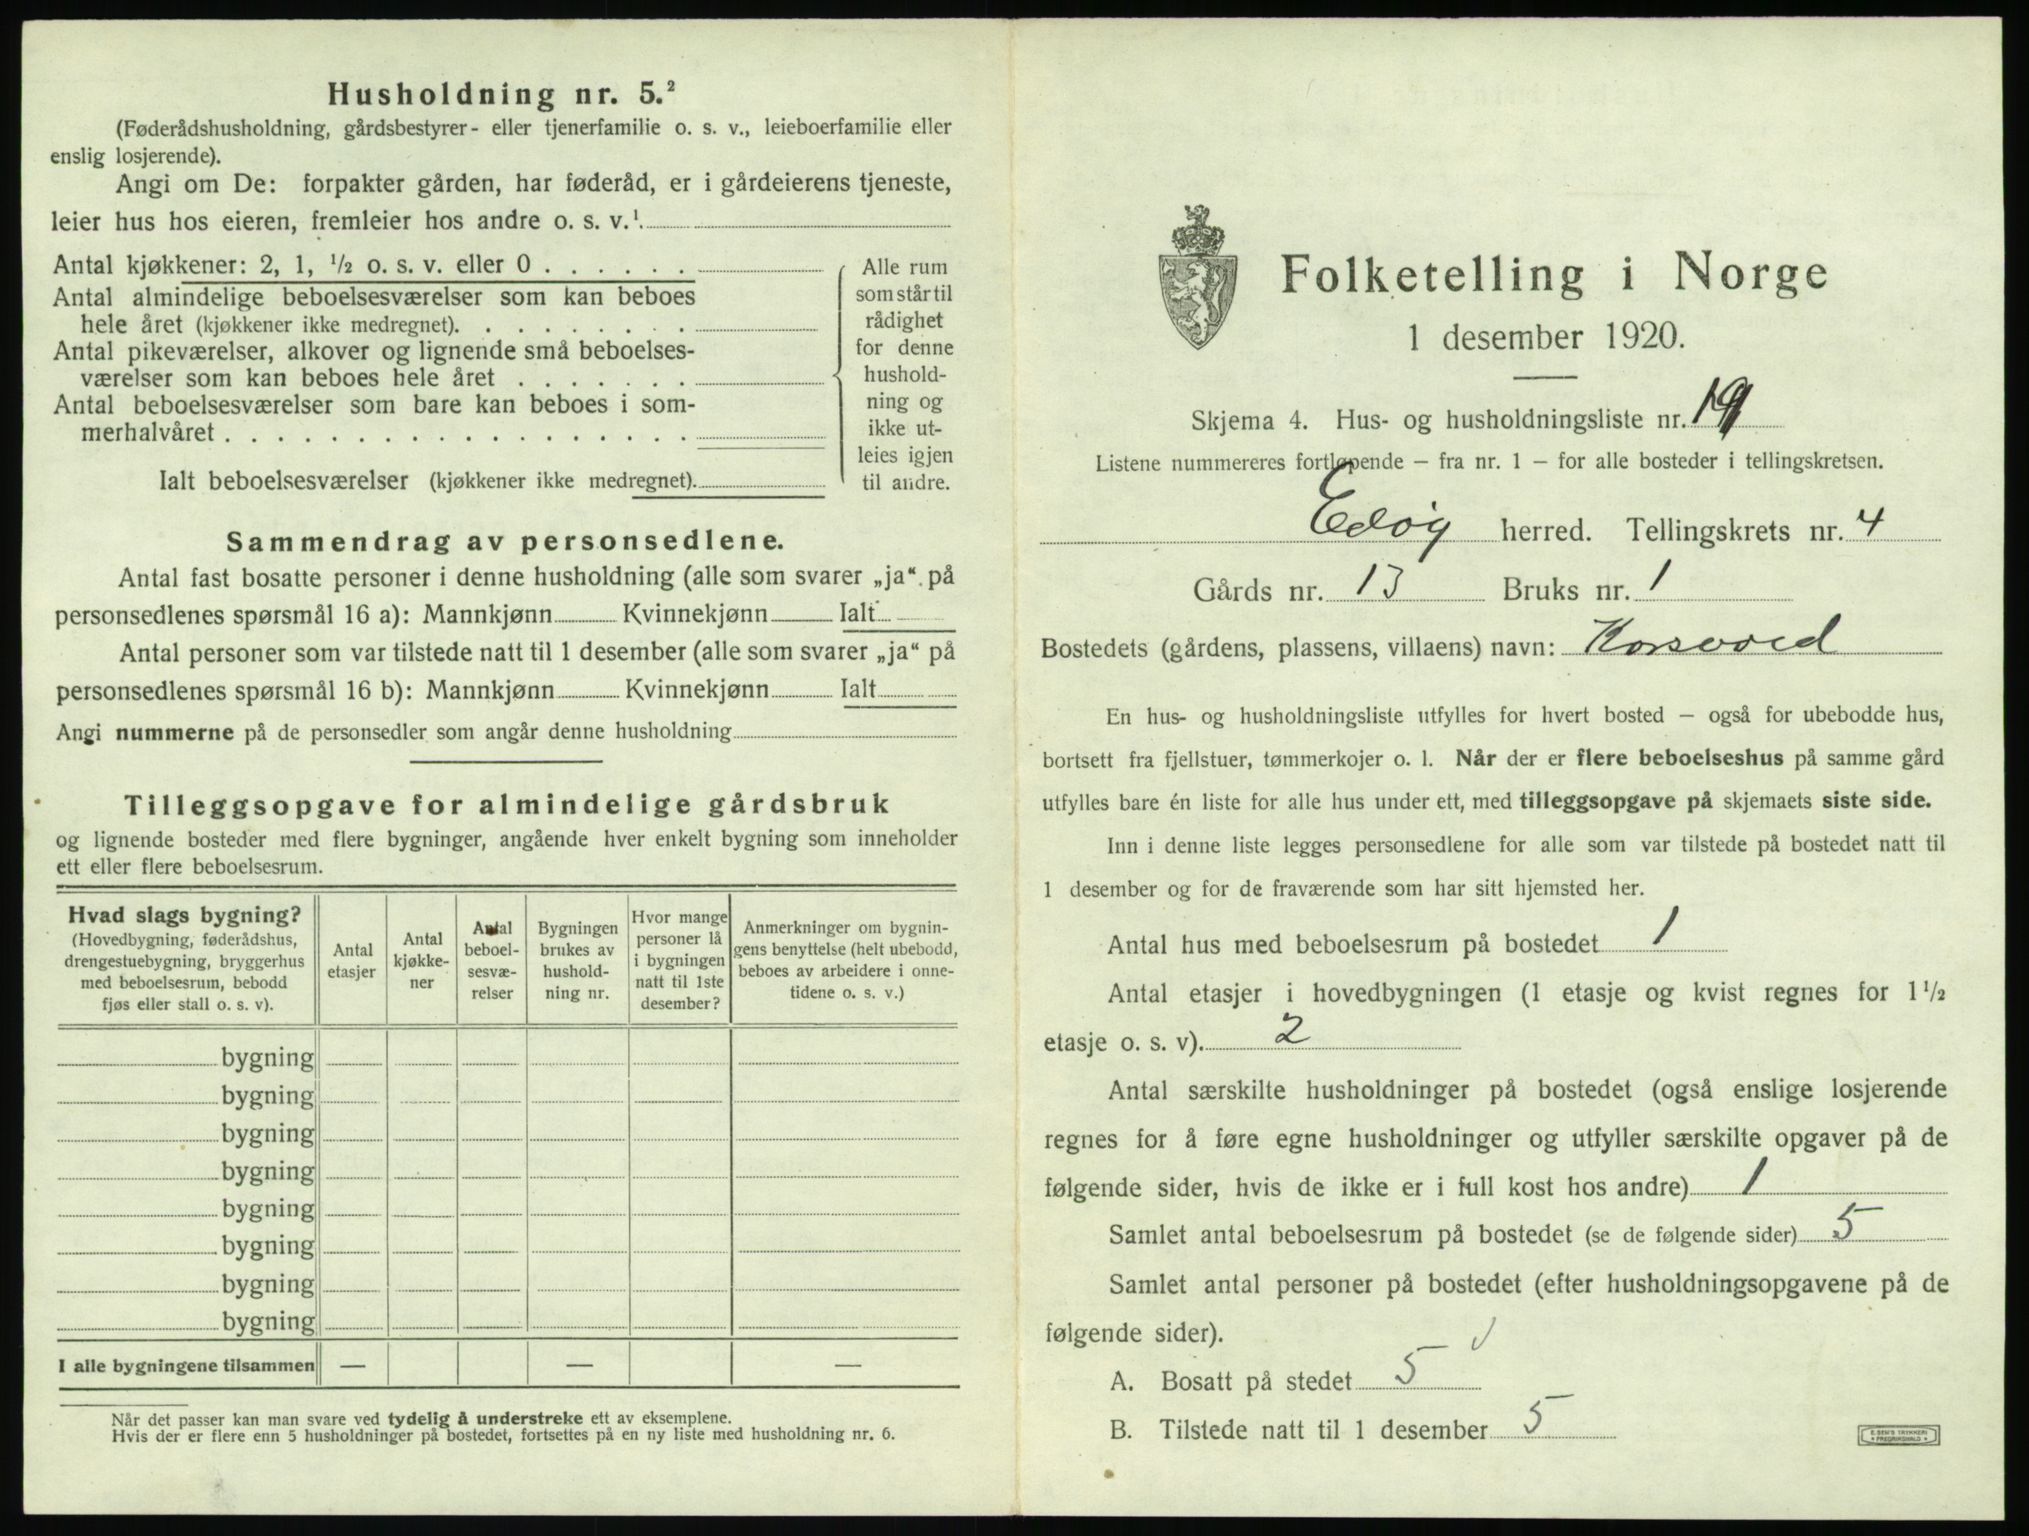 Husholdning nr. 5.²
(Føderådshusholdning, gårdsbestyrer- eller tjenerfamilie o. s. v., leieboerfamilie eller
enslig losjerende).
Angi om De: forpakter gården, har føderåd, er i gårdeierens tjeneste,
leier hus hos eieren, fremleier hos andre o. s. v.¹
Antal kjøkkener: 2, 1, ½ o. s. v. eller 0 . . . . . .
Antal almindelige beboelsesværelser som kan beboes
hele året (kjøkkener ikke medregnet). . . . . . . . .
Antal pikeværelser, alkover og lignende små beboelses-
værelser som kan beboes hele året . . . . . . .
Antal beboelsesværelser som bare kan beboes i som-
merhalvåret . . . . . . . . . . . . . . . . . .
Alle rum
som står til
rådighet
for denne
hushold-
ning og
ikke ut-
leies igjen
til andre.
Ialt beboelsesværelser (kjøkkener ikke medregnet).
Sammendrag av personsedlene.
Antal fast bosatte personer i denne husholdning (alle som svarer „ja“ på
personsedlenes spørsmål 16 a): Mannkjønn Kvinnekjønn Ialt
Antal personer som var tilstede natt til 1 desember (alle som svarer „ja“ på
personsedlenes spørsmål 16 b): Mannkjønn Kvinnekjønn Ialt
Angi nummerne på de personsedler som angår denne husholdning
Tilleggsopgave for almindelige gårdsbruk
og lignende bosteder med flere bygninger, angående hver enkelt bygning som inneholder
ett eller flere beboelsesrum.
Hvad slags bygning?
(Hovedbygning, føderådshus,
drengestuebygning, bryggerhus
med beboelsesrum, bebodd
fjøs eller stall o. s. v).
Antal
etasjer
Antal
kjøkke-
ner
Antal
beboel-
sesvæ-
relser
Bygningen
brukes av
hushold-
ning nr.
Hvor mange
personer lå
i bygningen
natt til 1ste
desember?
Anmerkninger om bygnin-
gens benyttelse (helt ubebodd,
beboes av arbeidere i onne-
tidene o. s. v.)
bygning
bygning
bygning
bygning
bygning
bygning
bygning
bygning
I alle bygningene tilsammen — — —
Når det passer kan man svare ved tydelig å understreke ett av eksemplene.
Hvis der er flere enn 5 husholdninger på bostedet, fortsettes på en ny liste med husholdning nr. 6.
Folketelling i Norge
1 desember 1920.
Skjema 4. Hus- og husholdningsliste nr. 19
Listene nummereres fortløpende — fra nr. 1 — for alle bosteder i tellingskretsen.
Edøy herred. Tellingskrets nr. 4
Gårds nr. 13 Bruks nr. 1
Bostedets (gårdens, plassens, villaens) navn: Korsvold
En hus- og husholdningsliste utfylles for hvert bosted — også for ubebodde hus,
bortsett fra fjellstuer, tømmerkojer o. l. Når der er flere beboelseshus på samme gård
utfylles bare én liste for alle hus under ett, med tilleggsopgave på skjemaets siste side.
Inn i denne liste legges personsedlene for alle som var tilstede på bostedet natt til
1 desember og for de fraværende som har sitt hjemsted her.
Antal hus med beboelsesrum på bostedet 1
Antal etasjer i hovedbygningen (1 etasje og kvist regnes for 1½
etasje o. s. v). 2
Antal særskilte husholdninger på bostedet (også enslige losjerende
regnes for å føre egne husholdninger og utfyller særskilte opgaver på de
følgende sider, hvis de ikke er i full kost hos andre) 1
Samlet antal beboelsesrum på bostedet (se de følgende sider) 5
Samlet antal personer på bostedet (efter husholdningsopgavene på de
følgende sider).
A. Bosatt på stedet 5
B. Tilstede natt til 1 desember 5
E. SEM'S TRYKKERI
FREDRIKSHALD